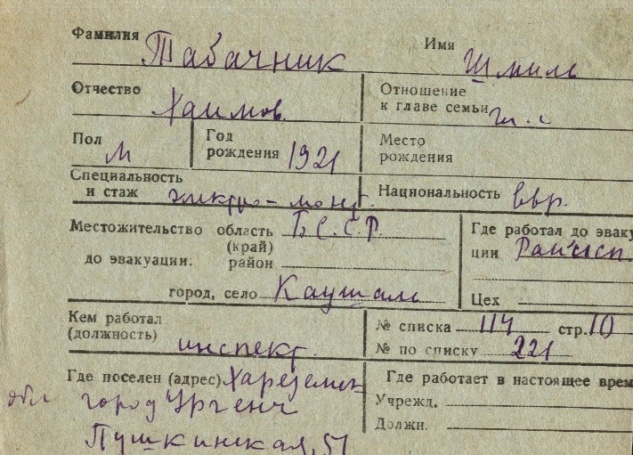 Фамилия Табачник Имя Шмиль
Отчество Хаимов. Отношение
к главе семьи
Пол М Год
рождения 1921 Место
рождения
Специальность
и стаж электро-монт. Национальность евр.
Местожительство область Б.С.С.Р
(край)
до эвакуации. район
Где работал до эваку
ции Райисп.
город, село Каушаль Цех
Кем работал
(должность) инспект. № списка 114 стр. 10
№ по списку 221
Где поселен (адрес) Харезмск Где работает в настоящее врем
обл город Ургенч Учрежд.
Должн.
Пушкинская, 51